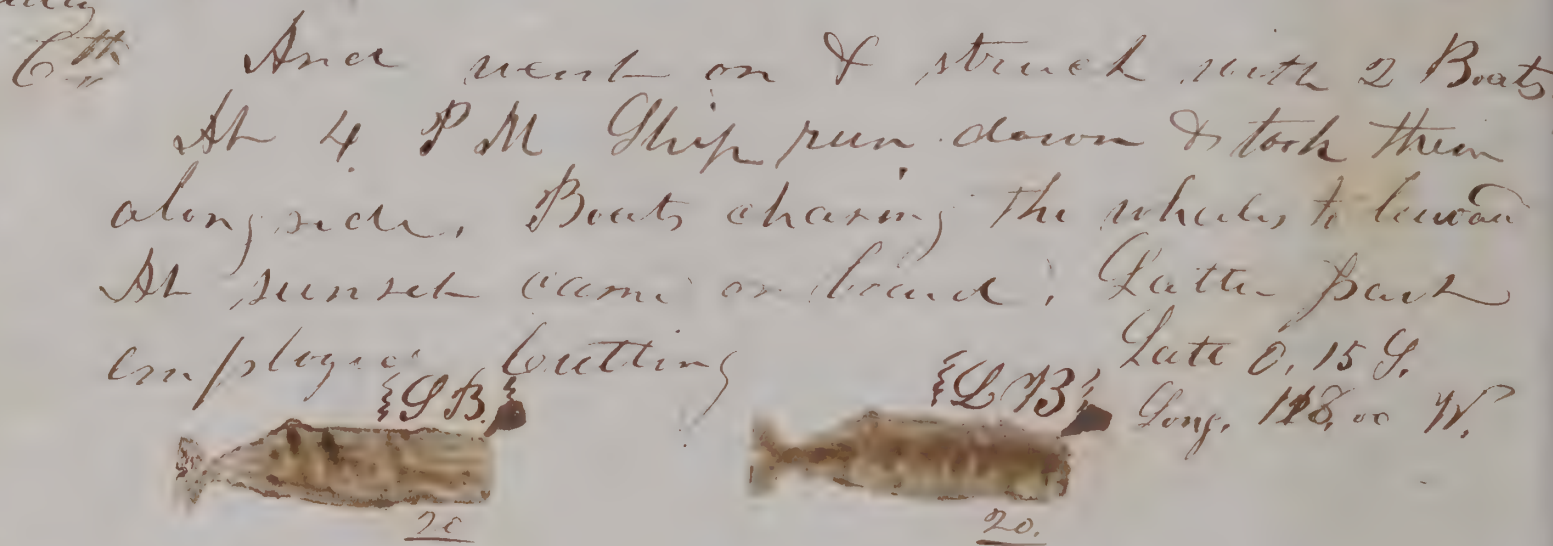 6th And went on & struck with 2 Boats
At 4 P M Ship run down & took them
alongside. Boats chasing the whales to leward
At sunset came on board. Latter part
employed Cutting Latt 0, 15 S.
S B. L B Long. 118, 00 W.
20 20.